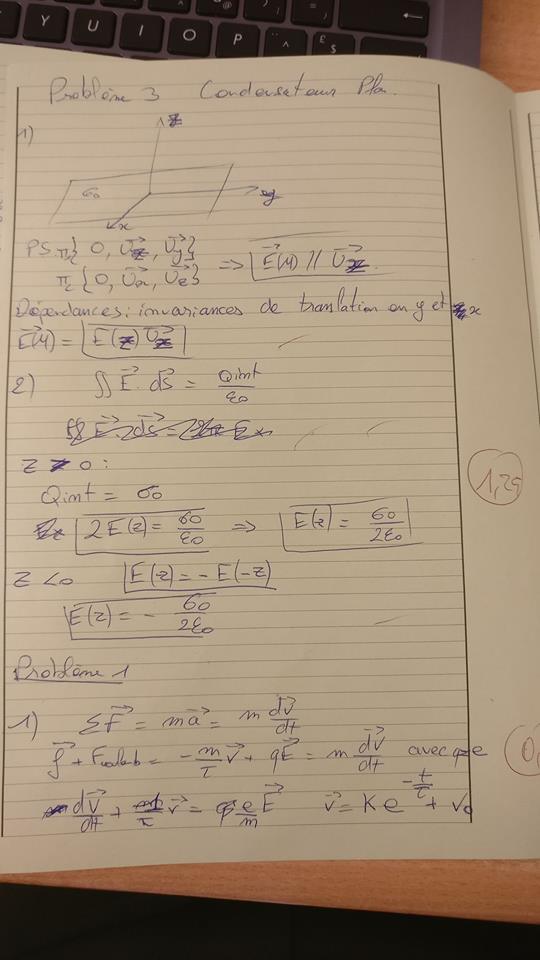 Y U I O P
Problème 3 Condensateur Plan.
1)
z
σ0
y
x
P.S. π{ O, Uz, Uy}
π{ O, Ux, Uz} ⇒ E(M) // Uz.
Dépendances: invariances de translation en y et x
E(M) = E(z) Uz
2) ∬ E. dS = Qint/ε0
∬ E. dS =
z > 0 :
Qint = σ0
2E(z) = σ0/ε0 ⇒ E(z) = σ0/2ε0
1,25
z < 0 E(z) = - E(-z)
E(z) = - σ0/2ε0
Problème 1
1) ΣF = ma = m dv/dt
f + Fcoulomb = - m/τ v + qE = m dv/dt avec q=e
0,
dv/dt + 1/τ v = e/m E v = K e^(-t/τ) + v0